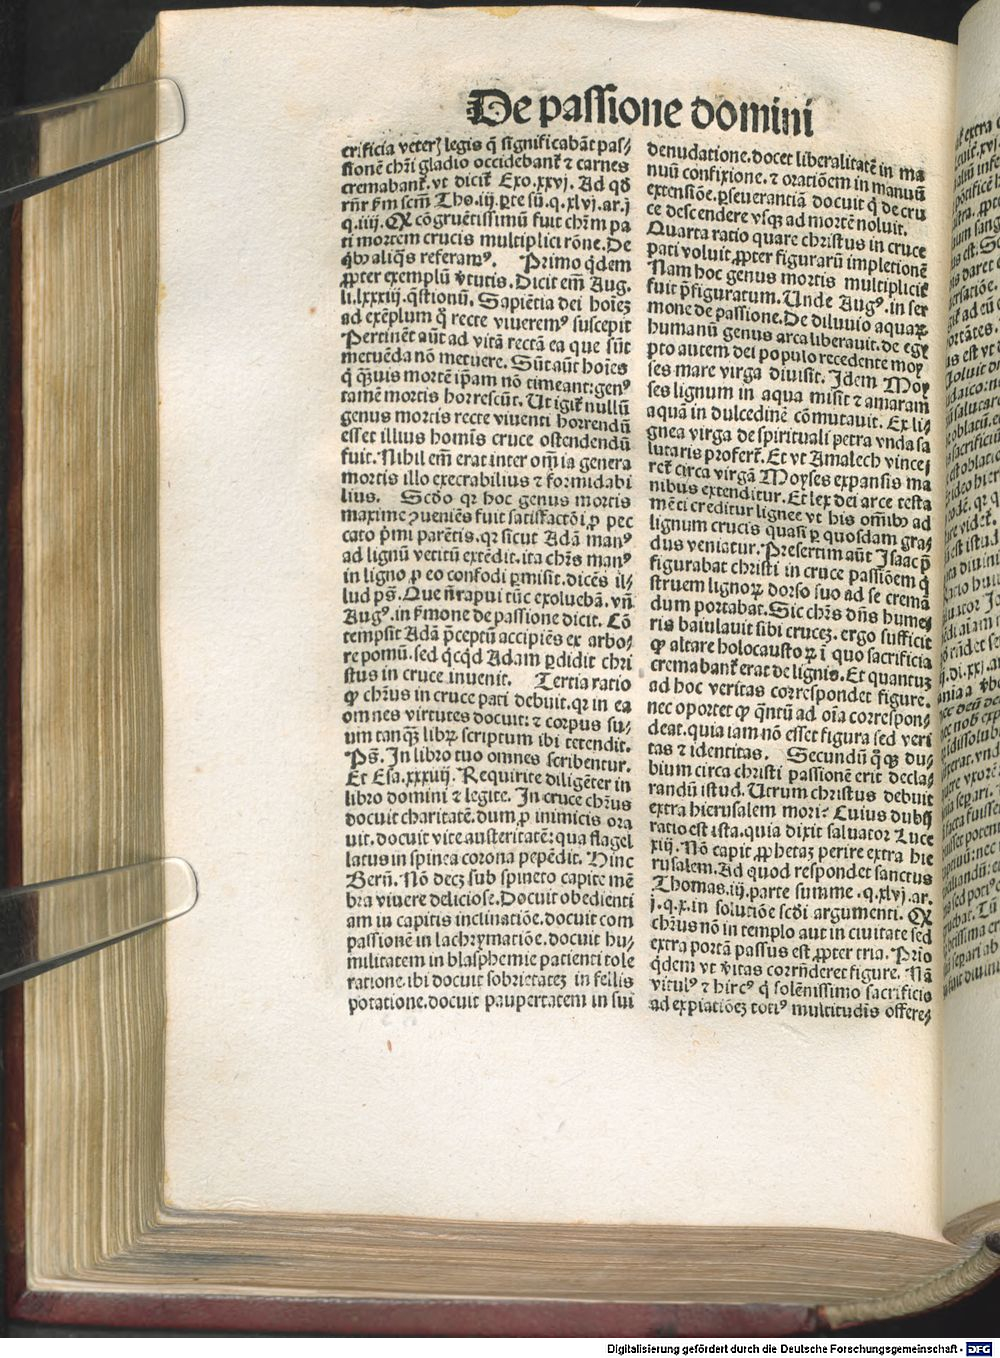 De passione domini
crificia veteꝝ legis q̄ significabāt pas⸗
sionē chr̄i gladio occidebant̄ ⁊ carnes
cremabant̄. vt dicit̄ Exo. xxvj. Ad qd̄
rn̄r ẜm scm̄ Tho. iij. ꝑte sū. q. xlvj. ar. j
q. iiij. Ꝙ cōgruētissimū fuit chr̄m pa
ti mortem crucis multiplici rōne. De
qb aliq̄s referamꝰ. Primo q̄dem
ꝓpter exemplū v̄tutis. Dicit em̄ Aug.
li. lxxxiij. q̄stionū. Sapiētia dei hoīeꝫ
ad exēplum q̄ recte viueremꝰ suscepit
Pertinēt aūt ad vitā rectā ea que sūt
metuēda nō metuere. Sūt aūt hoīes
q̄ q̄ꝫuis mortē ip̄am nō timeant: genꝰ
tamē mortis horrescūt. Ut igit̄ nullū
genus mortis recte viuenti horrendū
esset illius homīs cruce ostendendū
fuit. Nihil em̄ erat inter om̄ia genera
mortis illo execrabilius ⁊ formidabi
lius. Scd̄o qꝛ hoc genus mortis
maxime ꝯueniēs fuit satisfactōi ꝓ pec
cato p̄mi parētis. qꝛ sicut Adā manꝰ
ad lignū vetitū extēdit. ita chr̄s manꝰ
in ligno ꝓ eo confodi ꝑmisit. dicēs il⸗
lud ps̄. Que nō rapui tūc exoluebā. vn̄
Augꝰ. in ẜmone de passione dicit. Cō
tempsit Adā p̄ceptū accipiēs ex arbo⸗
re pomū. sed q̄cqd Adam ꝑdidit chri
stus in cruce inuenit. Tertia ratio
ꝙ chr̄us in cruce pati debuit. qꝛ in ea
omnes virtutes docuit: ⁊ corpus su⸗
um tanqꝫ libꝝ scriptum ibi tetendit.
Ps̄. In libro tuo omnes scribentur.
Et Esa. xxxiiij. Requirite diligēter in
libro domini ⁊ legite. In cruce chr̄us
docuit charitatē. dum ꝓ inimicis ora
uit. docuit vite austeritatē: qua flagel
latus in spinea corona pepēdit. Hinc
Berñ. Nō decꝫ sub spineto capite mē
bra viuere deliciose. Docuit obedienti
am in capitis inclinatiōe. docuit com
passionē in lachrymatiōe. docuit hu⸗
militatem in blasphemie patienti tole
ratione. ibi docuit sobrietateꝫ in fellis
potatione. docuit paupertatem in sui
denudatione. docet liberalitatē in ma
nuū confixione. ⁊ oratiōem in manuū
extensiōe. ꝑseuerantiā docuit q̄ de cru
ce descendere vsqꝫ ad mortē noluit.
Quarta ratio quare christus in cruce
pati voluit ꝓpter figurarū impletionē
Nam hoc genus mortis multipliciť
fuit p̄figuratum. Unde Augꝰ. in ser
mone de passione. De diluuio aquaꝝ
humanū genus arca liberauit. de egy
pto autem dei populo recedente moy
ses mare virga diuisit. Idem Moy
ses lignum in aqua misit ⁊ amaram
aquā in dulcedinē cōmutauit. Ex li⸗
gnea virga de spirituali petra vnda sa
lutaris profert̄. Et vt Amalech vince⸗
ret̄ circa virgā Moyses expansis ma
nibus extenditur. Et lex dei arce testa
mēti creditur lignee vt his om̄ibꝫ ad
lignum crucis quasi ꝑ quosdam gra⸗
dus veniatur. Presertim aūt Isaac p̄
figurabat christi in cruce passiōem q̄
struem lignoꝝ dorso suo ad se crema
dum portabat. Sic chr̄s dn̄s hume⸗
ris baiulauit sibi cruceꝫ. ergo sufficit
ꝙ altare holocaustoꝝ ī quo sacrificia
cremabant̄ erat de lignis. Et quantuꝫ
ad hoc veritas correspondet figure.
nec oportet ꝙ q̄ntū ad oīa correspon⸗
deat. quia iam nō esset figura sed veri
tas ⁊ identitas. Secundū q̄qꝫ du⸗
bium circa christi passionē erit decla⸗
randū istud. Utrum christus debuit
extra hierusalem mori? Cuius dubij
ratio est ista. quia dixit saluator Luce
xiij. Nō capit ꝓphetaꝫ perire extra hie
rusalem. Ad quod respondet sanctus
Thomas. iij. parte summe. q. xlvj. ar.
j. q. x. in solutiōe scd̄i argumenti. Ꝙ
chr̄us nō in templo aut in ciuitate sed
extra portā passus est ꝓpter tria. Prīo
q̄dem vt v̄itas corrn̄deret figure. Nā
vitulꝰ ⁊ hircꝰ q̄ solēnissimo sacrificio
ad expiatiōeꝫ totiꝰ multitudīs offere⸗
Digitalisierung gefördert durch die Deutsche Forschungsgemeinschaft - DFG